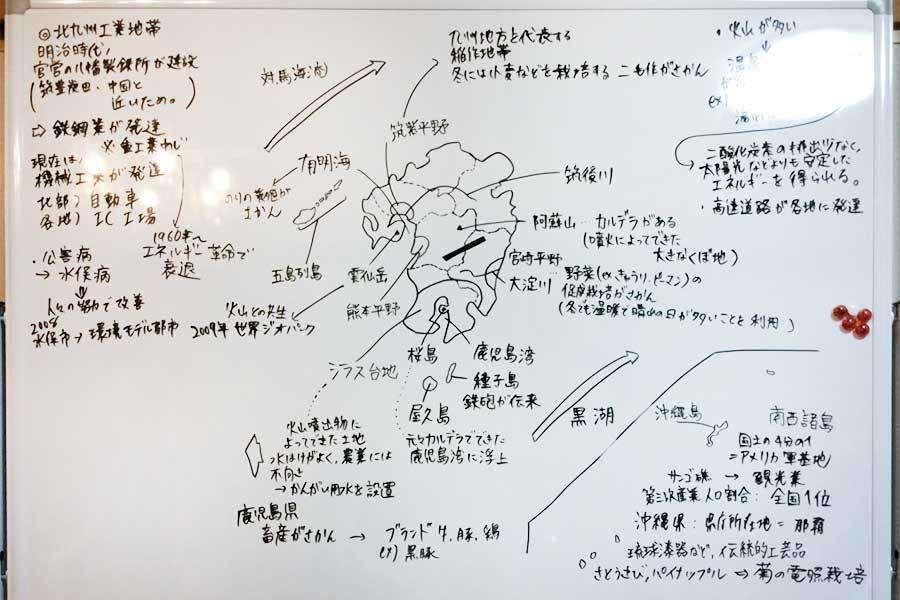 ◎北九州工業地帯
明治時代、
官営の八幡製鉄所が建設
(筑豊炭田・中国と
近いため。)
⇨ 鉄鋼業が発達
現在は、
機械工業が発達
北部) 自動車
各地) IC工場
1960年〜
エネルギー革命で
衰退
・公害病
→ 水俣病
人々の協力で改善
2008
水俣市→環境モデル都市
対馬海流
九州地方を代表する
稲作地帯
冬には小麦などを栽培する 二毛作がさかん
筑紫平野
有明海
のりの養殖が
さかん
五島列島
雲仙岳
火山との共生
2009年 世界ジオパーク
熊本平野
筑後川
阿蘇山…カルデラがある
(噴火によってできた
大きなくぼ地)
宮崎平野
大淀川
野菜(ex.きゅうり、ピーマン)の
促成栽培がさかん
(冬でも温暖で晴れの日が多いことを利用)
・火山が多い
ex)
二酸化炭素の排出少なく、
太陽光などよりも安定した
エネルギーを得られる。
・高速道路が各地に発達
シラス台地
火山噴出物に
よってできた土地
水はけがよく、農業には
不向き
→かんがい用水を設置
桜島
元々カルデラでできた
鹿児島湾に浮上
鹿児島湾
種子島
鉄砲が伝来
屋久島
黒湖
鹿児島県
畜産がさかん → ブランド牛、豚、鶏
ex) 黒豚
沖縄島
南西諸島
国土の4分の1
=アメリカ軍基地
サンゴ礁 → 観光業
第三次産業人口割合: 全国1位
沖縄県: 県庁所在地=那覇
琉球漆器など、伝統的工芸品
さとうきび、パイナップル ⇨ 菊の電照栽培